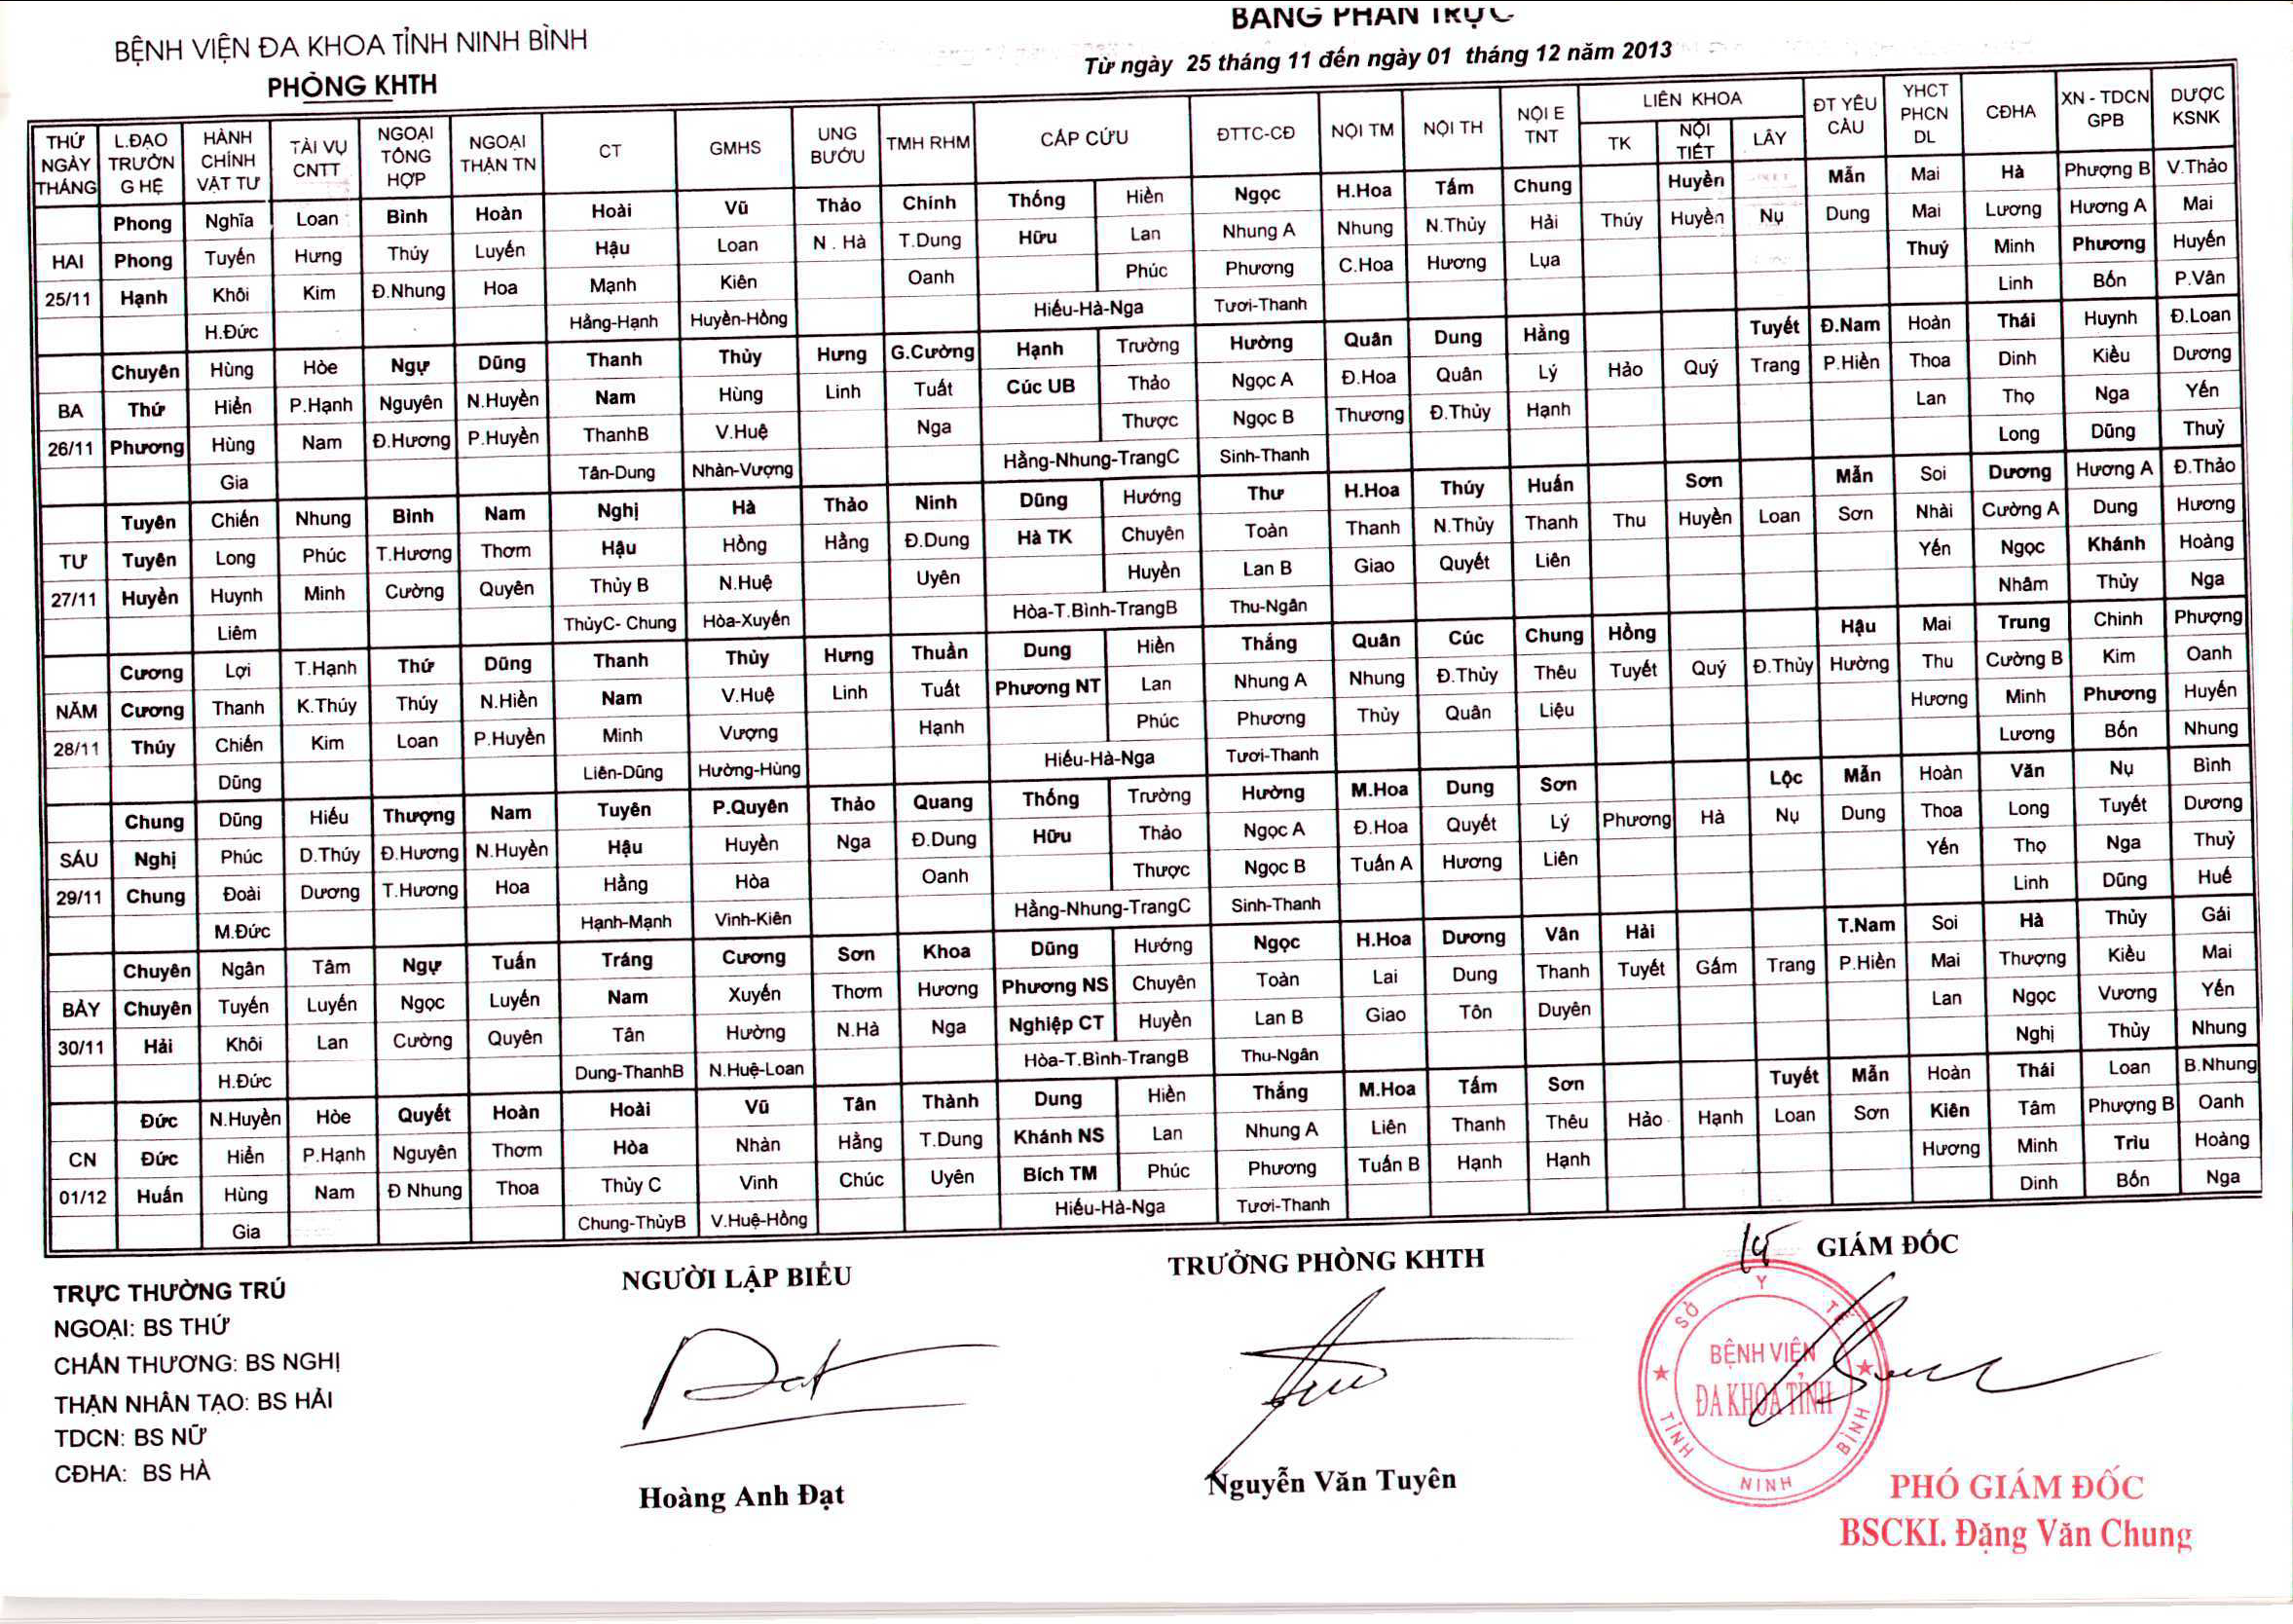 BẢNG PHÂN TRỰC
BỆNH VIỆN ĐA KHOA TỈNH NINH BÌNH
PHÒNG KHTH
Từ ngày 25 tháng 11 đến ngày 01 tháng 12 năm 2013
THỨ NGÀY THÁNG L.ĐẠO TRƯỞNG HỆ HÀNH CHÍNH VẬT TƯ TÀI VỤ CNTT NGOẠI TỔNG HỢP NGOẠI THẬN TN CT GMHS UNG BƯỚU TMH RHM CẤP CỨU ĐTTC-CĐ NỘI TM NỘI TH NỘI E TNT LIÊN KHOA TK NỘI TIẾT LÂY ĐT YÊU CẦU YHCT PHCN DL CĐHA XN - TDCN GPB DƯỢC KSNK
Phong Nghĩa Loan Bình Hoàn Hoài Vũ Thảo Chính Thống Hiền Ngọc H.Hoa Tấm Chung Huyền Mẫn Mai Hà Phượng B V.Thảo
HAI Phong Tuyến Hưng Thúy Luyến Hậu Loan N . Hà T.Dung Hữu Lan Nhung A Nhung N.Thủy Hải Thúy Huyền Nụ Dung Mai Lương Hương A Mai
25/11 Hạnh Khôi Kim Đ.Nhung Hoa Mạnh Kiên Oanh Phúc Phương C.Hoa Hương Lụa Thuý Minh Phương Huyến
H.Đức Hằng-Hạnh Huyền-Hồng Hiếu-Hà-Nga Tươi-Thanh Linh Bốn P.Vân
Chuyên Hùng Hòe Ngự Dũng Thanh Thủy Hưng G.Cường Hạnh Trường Hường Quân Dung Hằng Tuyết Đ.Nam Hoàn Thái Huynh Đ.Loan
BA Thứ Hiển P.Hạnh Nguyên N.Huyền Nam Hùng Linh Tuất Cúc UB Thảo Ngọc A Đ.Hoa Quân Lý Hảo Quý Trang P.Hiền Thoa Dinh Kiều Dương
26/11 Phương Hùng Nam Đ.Hương P.Huyền ThanhB V.Huệ Nga Thược Ngọc B Thương Đ.Thủy Hạnh Lan Thọ Nga Yến
Gia Tân-Dung Nhàn-Vượng Hằng-Nhung-TrangC Sinh-Thanh Long Dũng Thuỷ
Tuyên Chiến Nhung Bình Nam Nghị Hà Thảo Ninh Dũng Hướng Thư H.Hoa Thúy Huấn Sơn Mẫn Soi Dương Hương A Đ.Thảo
TƯ Tuyên Long Phúc T.Hương Thơm Hậu Hồng Hằng Đ.Dung Hà TK Chuyên Toàn Thanh N.Thủy Thanh Thu Huyền Loan Sơn Nhài Cường A Dung Hương
27/11 Huyền Huynh Minh Cường Quyên Thủy B N.Huệ Uyên Huyền Lan B Giao Quyết Liên Yến Ngọc Khánh Hoàng
Liêm ThủyC- Chung Hòa-Xuyến Hòa-T.Bình-TrangB Thu-Ngân Nhâm Thủy Nga
Cương Lợi T.Hạnh Thứ Dũng Thanh Thủy Hưng Thuần Dung Hiền Thắng Quân Cúc Chung Hồng Hậu Mai Trung Chinh Phượng
NĂM Cương Thanh K.Thúy Thúy N.Hiền Nam V.Huệ Linh Tuất Phương NT Lan Nhung A Nhung Đ.Thủy Thêu Tuyết Quý Đ.Thủy Hường Thu Cường B Kim Oanh
28/11 Thúy Chiến Kim Loan P.Huyền Minh Vượng Hạnh Phúc Phương Thủy Quân Liệu Hương Minh Phương Huyến
Dũng Liên-Dũng Hường-Hùng Hiếu-Hà-Nga Tươi-Thanh Lương Bốn Nhung
Chung Dũng Hiếu Thượng Nam Tuyên P.Quyên Thảo Quang Thống Trường Hường M.Hoa Dung Sơn Lộc Mẫn Hoàn Văn Nụ Bình
SÁU Nghị Phúc D.Thúy Đ.Hương N.Huyền Hậu Huyền Nga Đ.Dung Hữu Thảo Ngọc A Đ.Hoa Quyết Lý Phương Hà Nụ Dung Thoa Long Tuyết Dương
29/11 Chung Đoài Dương T.Hương Hoa Hằng Hòa Oanh Thược Ngọc B Tuấn A Hương Liên Yến Thọ Nga Thuỷ
M.Đức Hạnh-Mạnh Vinh-Kiên Hằng-Nhung-TrangC Sinh-Thanh Linh Dũng Huế
Chuyên Ngân Tâm Ngự Tuấn Tráng Cương Sơn Khoa Dũng Hướng Ngọc H.Hoa Dương Vân Hải T.Nam Soi Hà Thủy Gái
BẢY Chuyên Tuyến Luyến Ngọc Luyến Nam Xuyến Thơm Hương Phương NS Chuyên Toàn Lai Dung Thanh Tuyết Gấm Trang P.Hiền Mai Thượng Kiều Mai
30/11 Hải Khôi Lan Cường Quyên Tân Hường N.Hà Nga Nghiệp CT Huyền Lan B Giao Tôn Duyên Lan Ngọc Vương Yến
H.Đức Dung-ThanhB N.Huệ-Loan Hòa-T.Bình-TrangB Thu-Ngân Nghị Thủy Nhung
Đức N.Huyền Hòe Quyết Hoàn Hoài Vũ Tân Thành Dung Hiền Thắng M.Hoa Tấm Sơn Tuyết Mẫn Hoàn Thái Loan B.Nhung
CN Đức Hiển P.Hạnh Nguyên Thơm Hòa Nhàn Hằng T.Dung Khánh NS Lan Nhung A Liên Thanh Thêu Hảo Hạnh Loan Sơn Kiên Tâm Phượng B Oanh
01/12 Huấn Hùng Nam Đ Nhung Thoa Thủy C Vinh Chúc Uyên Bích TM Phúc Phương Tuấn B Hạnh Hạnh Hương Minh Trìu Hoàng
Gia Chung-ThủyB V.Huệ-Hồng Hiếu-Hà-Nga Tươi-Thanh Dinh Bốn Nga
TRỰC THƯỜNG TRÚ
NGOẠI: BS THỨ
CHẤN THƯƠNG: BS NGHỊ
THẬN NHÂN TẠO: BS HẢI
TDCN: BS NỮ
CĐHA: BS HÀ
NGƯỜI LẬP BIỂU
Hoàng Anh Đạt
TRƯỞNG PHÒNG KHTH
Nguyễn Văn Tuyên
GIÁM ĐỐC
SỞ Y TẾ
BỆNH VIỆN
ĐA KHOA TỈNH
TỈNH NINH BÌNH
PHÓ GIÁM ĐỐC
BSCKI. Đặng Văn Chung